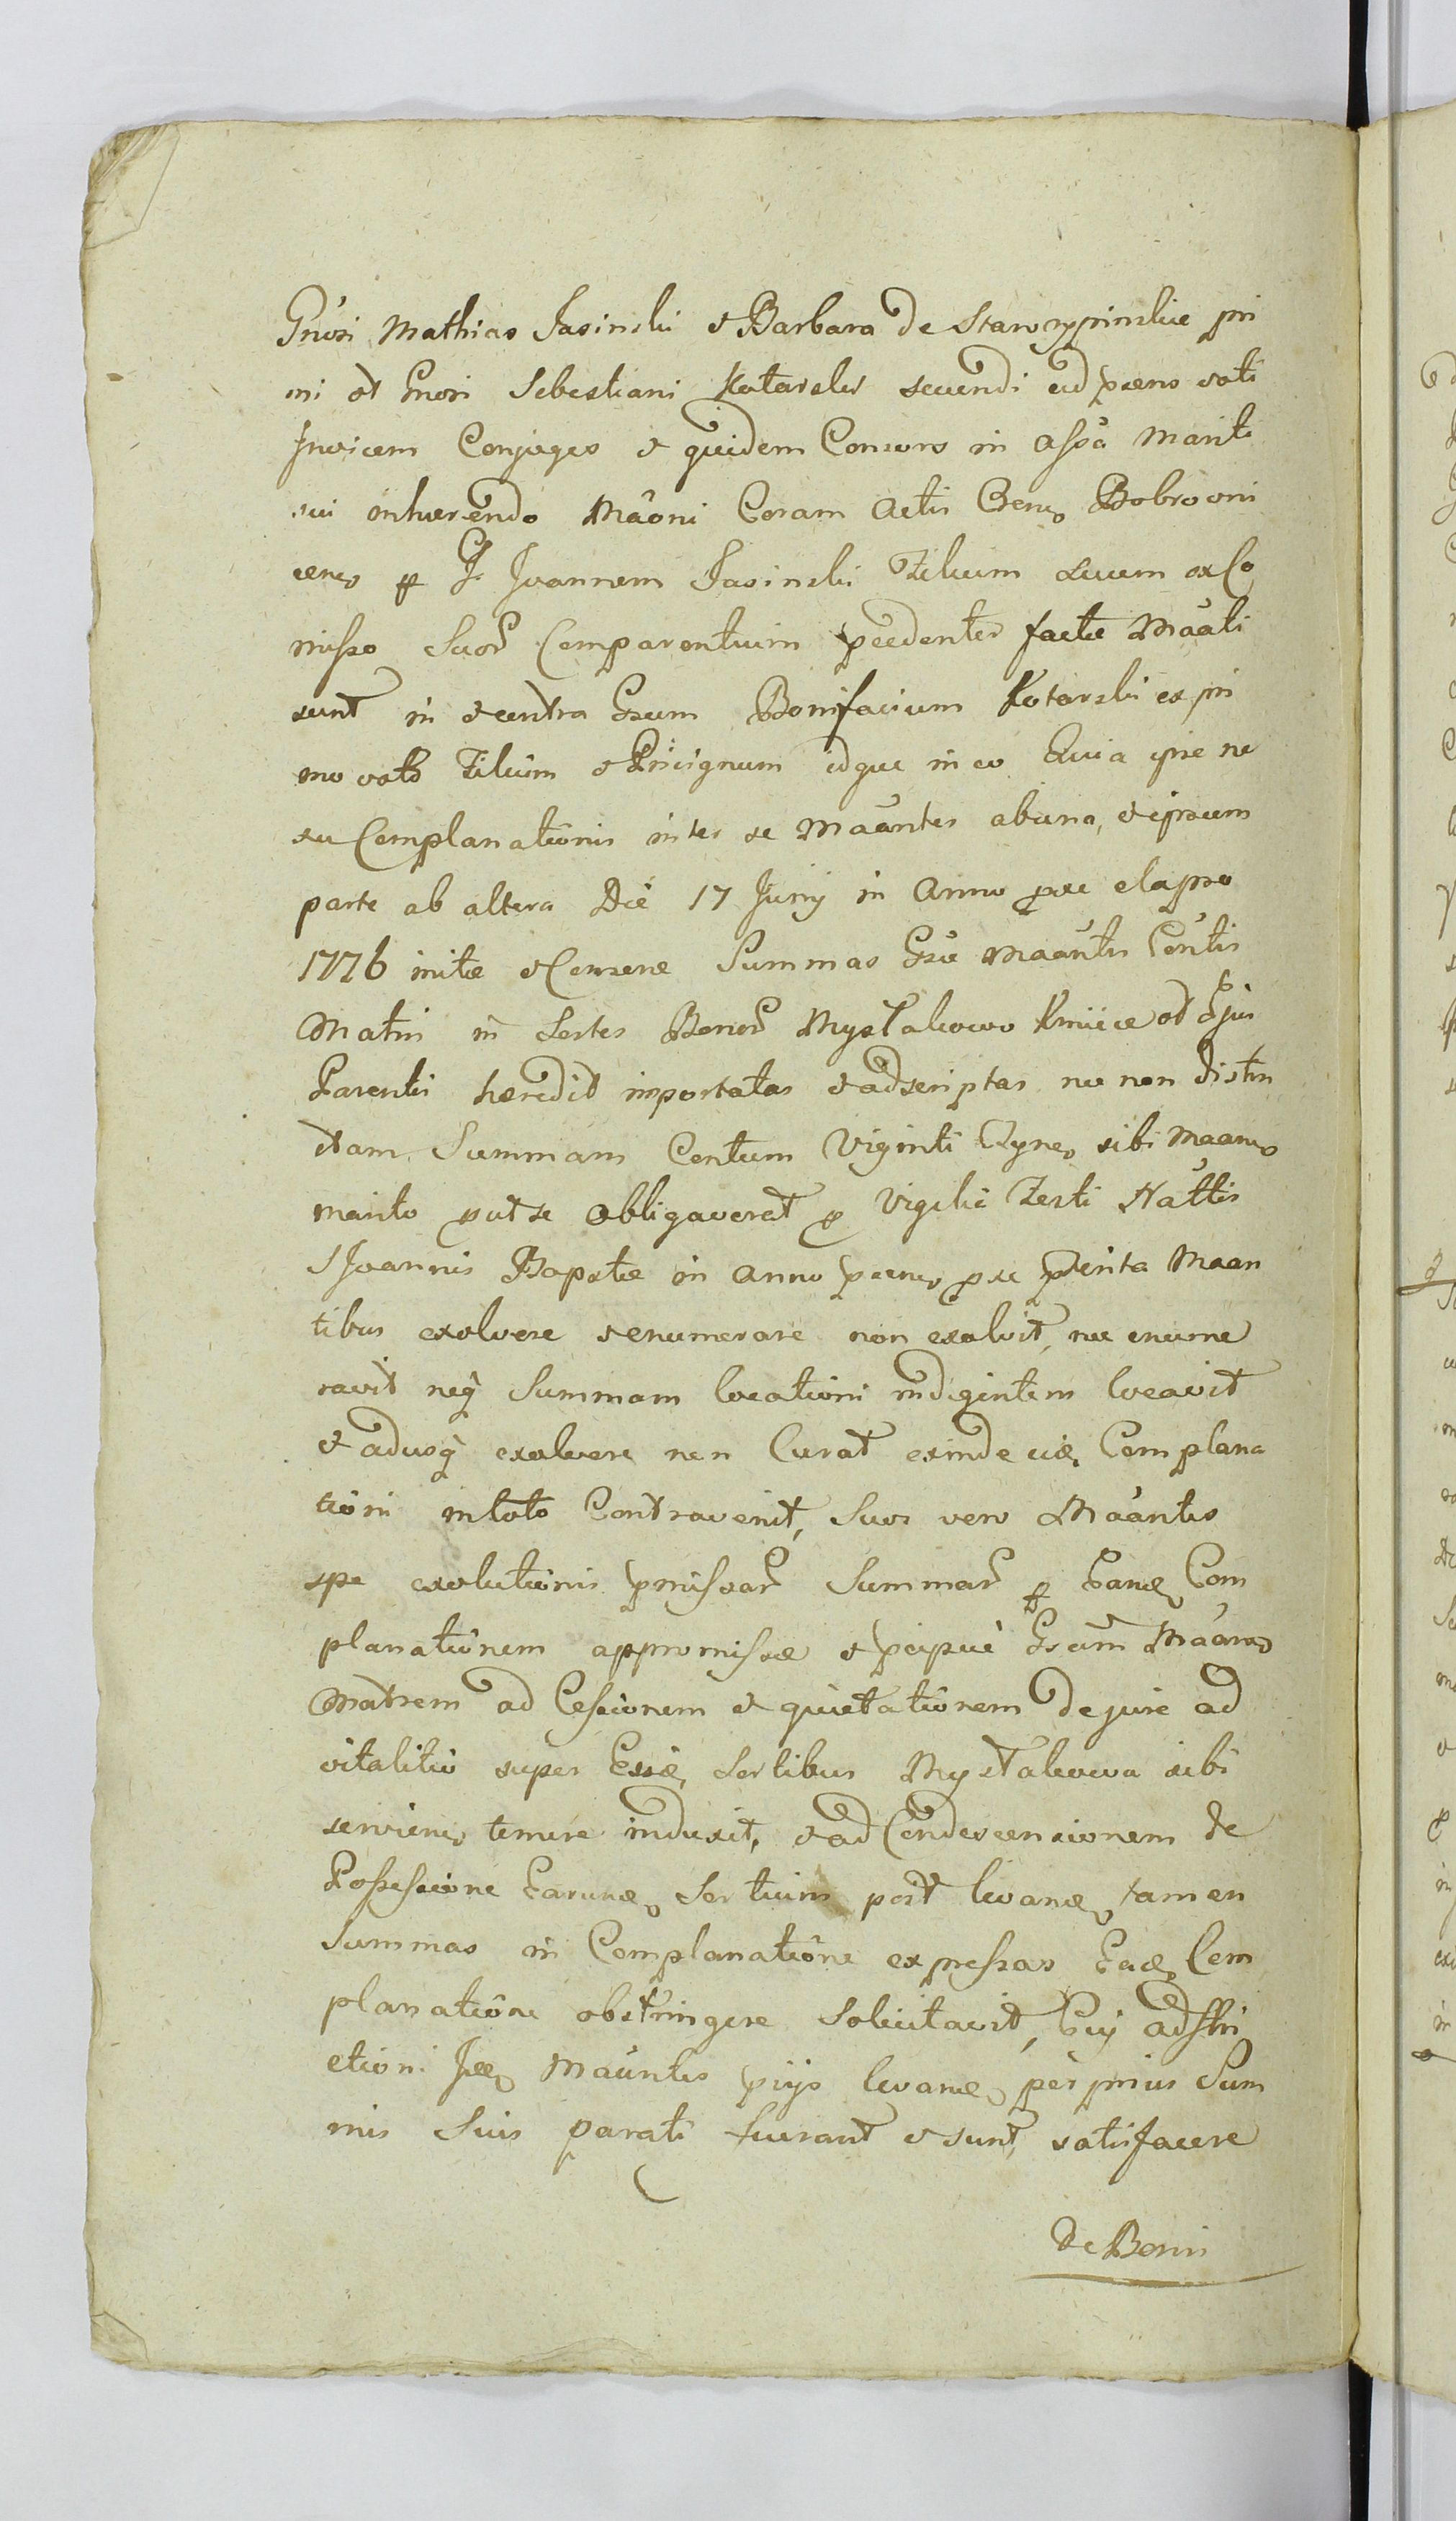 Gnōsi Mathias Jasinski & Barbara de Starorypinskie pri
mi et Gnosi Sebestiani Kotarski secundi ad praens voti
Invicem Conjuges & quidem Consors in assā Mariti
sui inhaerendo Mãoni Coram Actis Bobrowni
cens p G Joannem Jasinski Filium suum ex Co
misso Suoȓ Comparentium pcedenter factae Mãati
sunt in & contra Gsum Bonifacium Kotarski ex pri
mo voto Filium & Privignum idque in eo Quia ipse ne
su Complanationis inter se Mãantes ab una, & ipsum
parte ab altera Die 17 Junij in Anno pxe elapso
1776 initae & Conserae Summas Gsae Mãantis
Matris in Sortes Bonoȓ Mystakowo Kmiice et
Parentis haeredit importatas & adscriptas nec non distin
ctam Summam Centum Viginti sibi Maans
marito put se obligaverat p Vigilia Festi Nattis
S Joannis Baptae in Anno pxe pterita Maan
tibus exolvere & enumerare non exolvit, nec enume
ravit neq̃ Summam locationi indigentem locavit
& adusq̃ exolvere non Curat exinde Complana
tioni in toto Contravenit, Suos vero Mãantes
spe exolutionis pmissaȓ Summaȓ p Com
planationem appromissae & pcipue Gsam Mãans
Matrem ad Cessionem & quietationem de jure ad
vitalitio super Sortibus Mystakowo sibi
serviens temere induxit, & ad Condescensionem de
Possessione Sortium post tamen
Summas in Complanatione expressas Com
planatione obstringere Solicitavit, Cuj adstri
ctioni Mãantes per prius Sum
mis Suis parati fuerant & sunt satisfacere
de Bonis